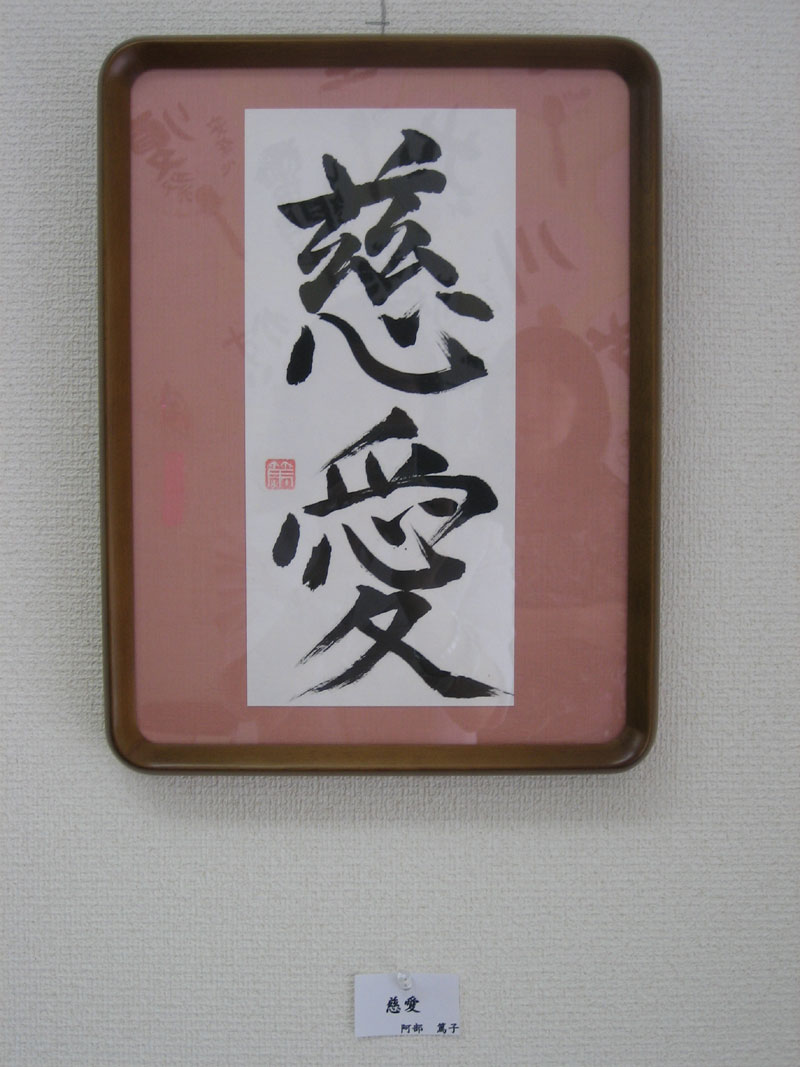 慈愛
慈愛
阿部 篤子